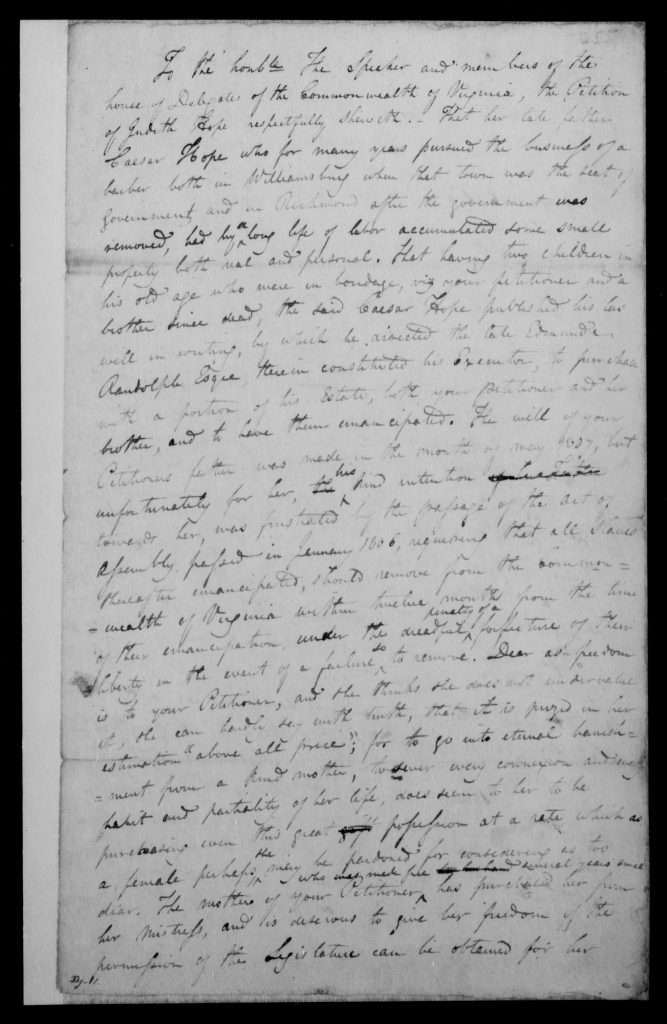 To the honble The Speaker and members of the
house of Delegates of the Commonwealth of Virginia, the Petition
of Judith Hope respectfully sheweth.. That her late father
Caesar Hope who for many years pursued the business of a
barber both in Williamsburg when that town was the seat of
government, and in Richmond after the government was
removed, had by a long life of labor accumulated some small
property both real and personal. That having two children in
his old age who were in bondage, viz your petitioner and a
brother since dead, the said Caesar Hope published his last
will in writing, by which he directed the late Edmund
Randolph Esqre, therein constituted his Executor, to purchase
with a portion of his Estate, both your Petitioner and her
brother, and to have them emancipated. The will of your
Petitioners father was made in the month of may 1807, but
unfortunately for her, his kind intention
towards her, was frustrated by the passage of the act of
Assembly passed in January 1806, requiring that all Slaves
thereafter emancipated, should remove from the Common=
=wealth of Virginia within twelve months from the time
of their emancipation under the dreadful penalty of a forfeiture of their
liberty in the event of a failure so to remove. Dear as freedom
is to your Petitioner, and she thinks she does not undervalue
it, she can hardly say with truth, that it is prized in her
estimation "above all price"; for to go into eternal banish=
=ment from a kind mother, to sever every connexion and
habit and partiality of her life, does seem to her to be
purchasing even this great possession at a rate which as
a female perhaps she may be pardoned for considering as too
dear. The mother of your Petitioner, who was freed several years since
has purchased her from
her Mistress, and is desirous to give her freedom if the
permission of the Legislature can be obtained for her